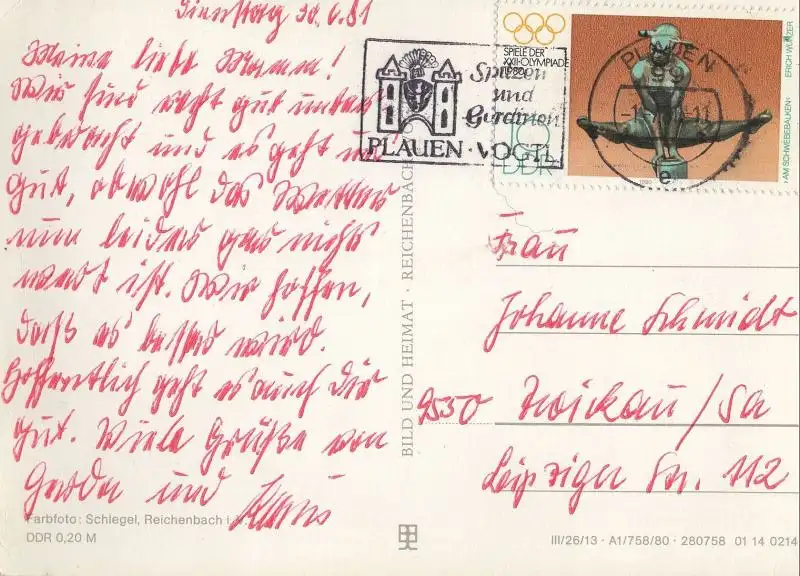 Dienstag 30.6.81
Meine liebe Mamm!
Wir sind recht gut unter
gebracht und es geht uns
gut, obwohl das Wetter
nun leider gar nicht
wert ist. Wir hoffen,
daß es besser wird.
Hoffentlich geht es auch Dir
gut. Viele Grüße von
Gerda und Klaus
Farbfoto: Schlegel, Reichenbach i.
DDR 0,20 M
BILD UND HEIMAT · REICHENBACH
Spitzen
und
Gardinen
PLAUEN · VOGTL
SPIELE DER
XXII. OLYMPIADE
1980
10
DDR
1980
›AM SCHWEBEBALKEN‹
ERICH WURZER
PLAUEN
99
e
Frau
Johanne Schmidt
9550 Zwickau/Sa
Leipziger Str. 112
III/26/13 · A1/758/80 · 280758 01 14 0214